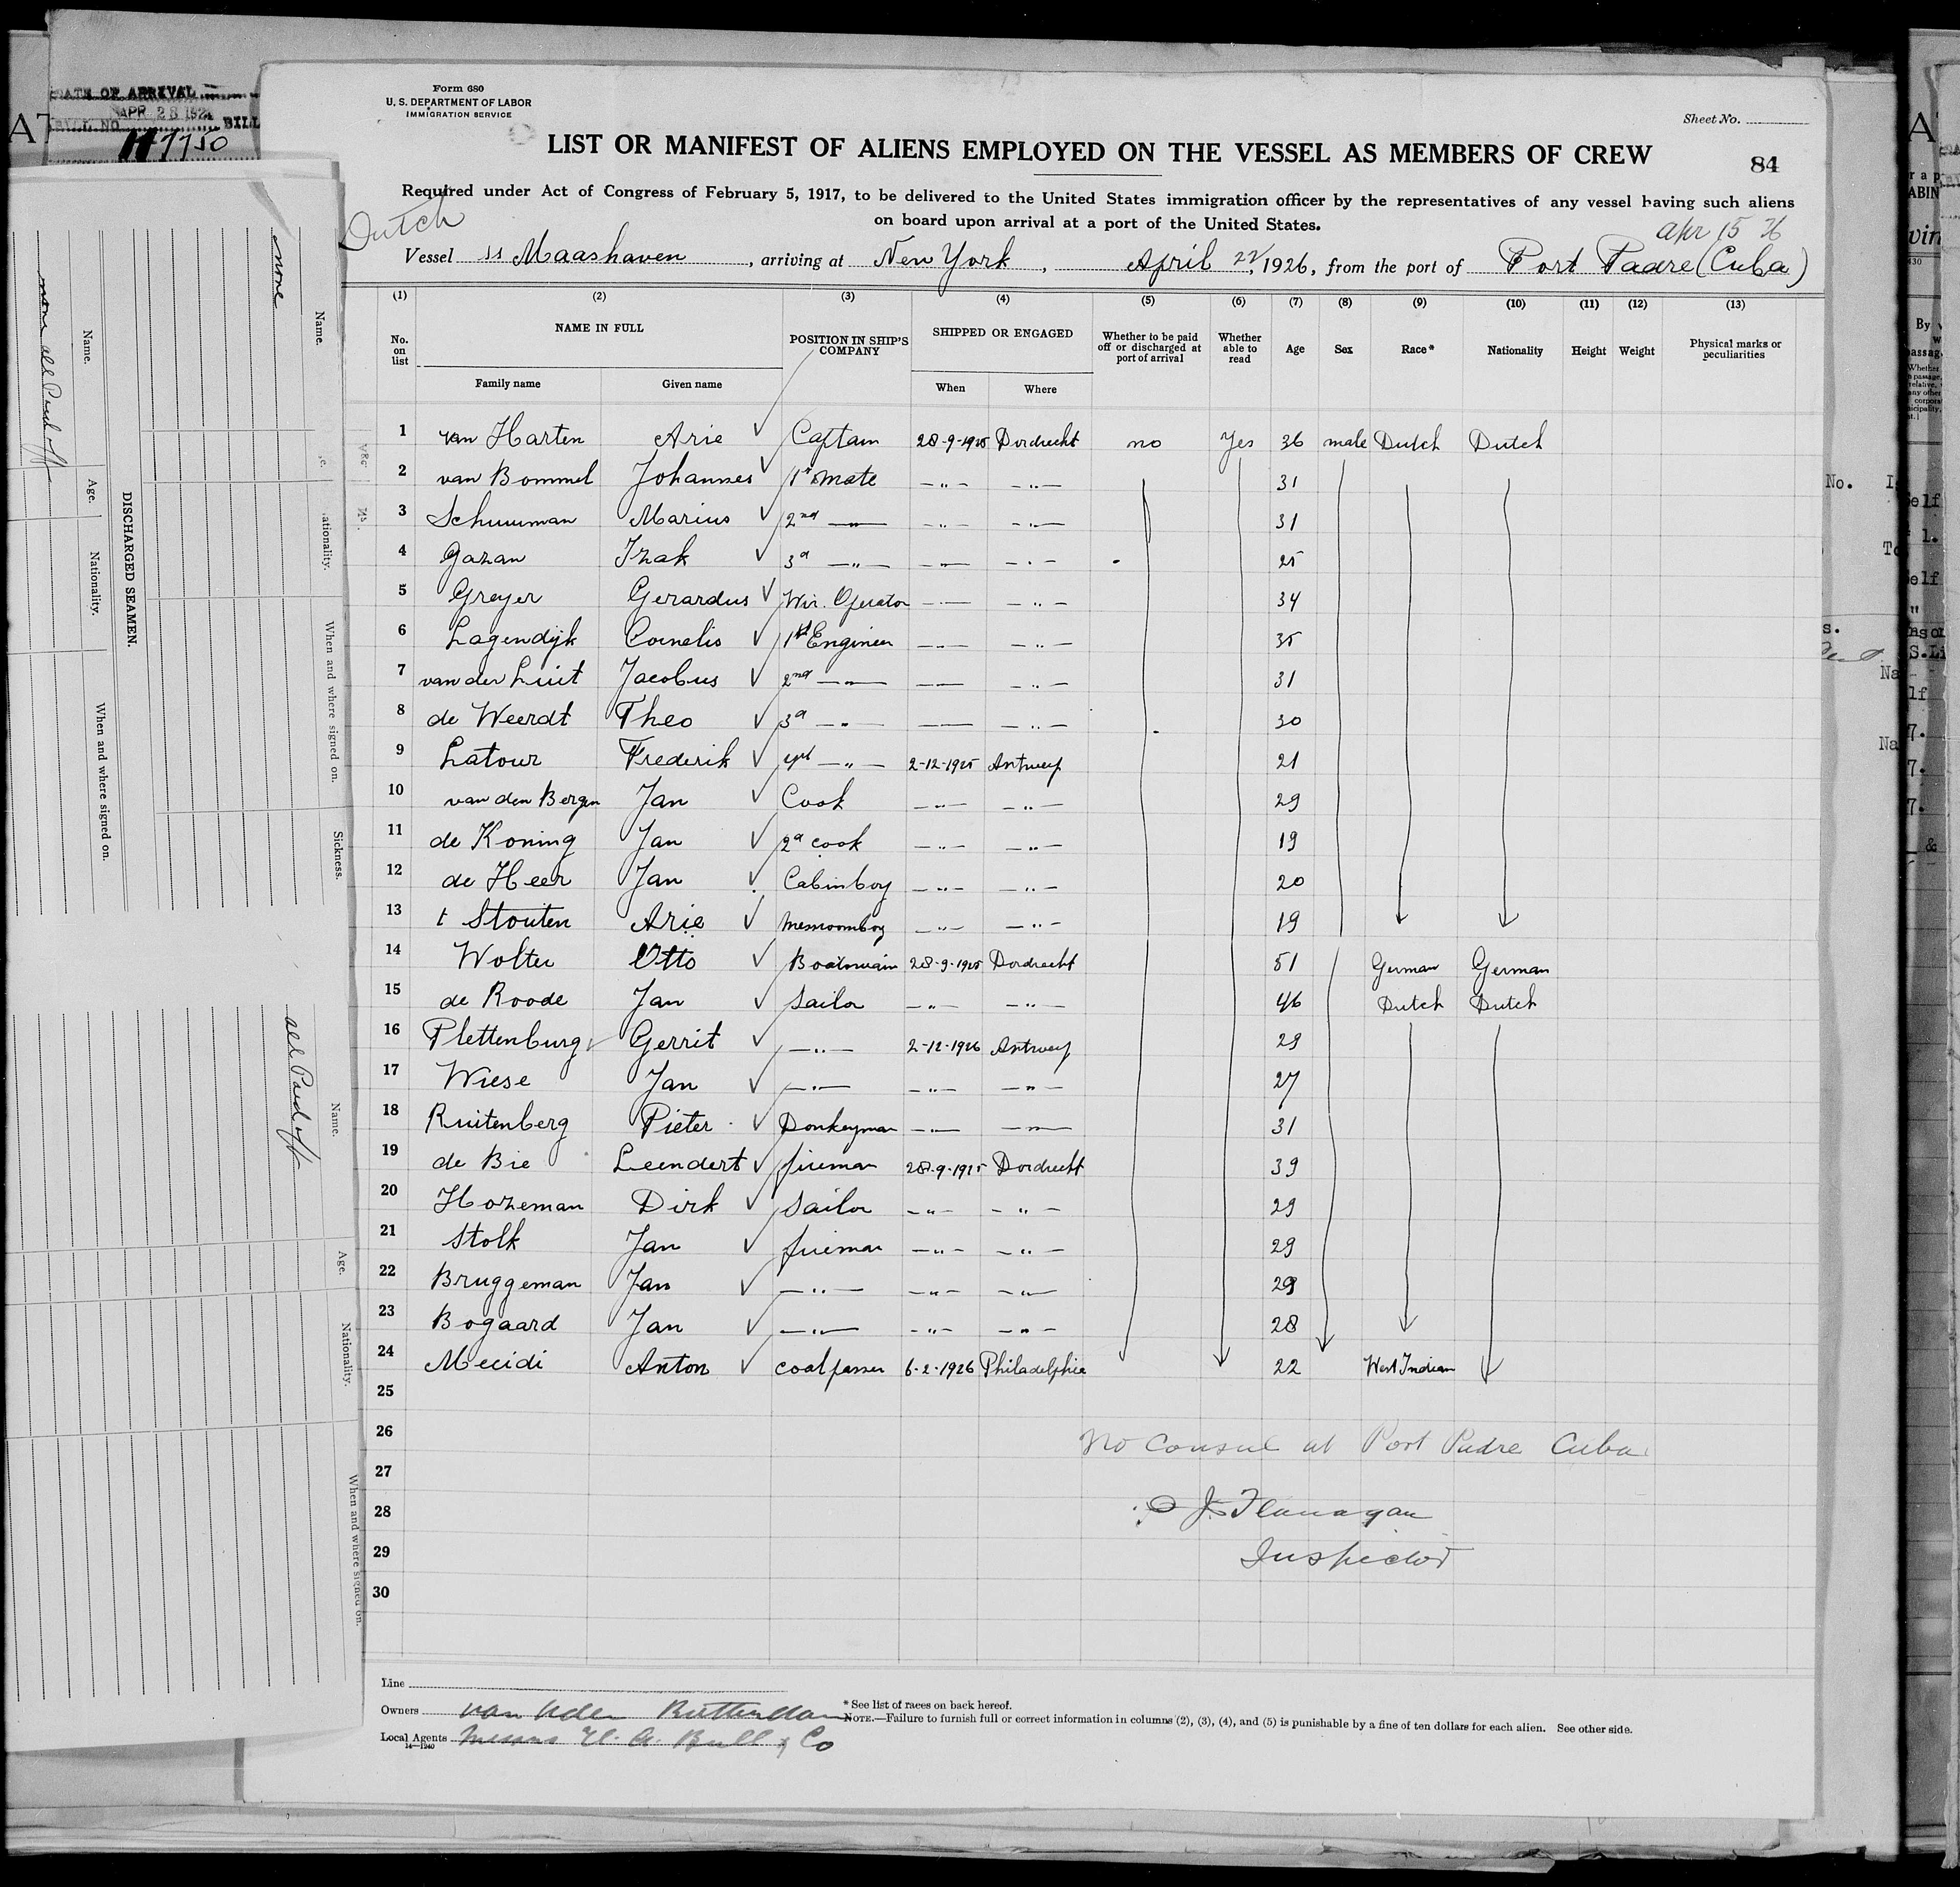 DATE OF ARRIVAL
APR 28 1926
BILL NO. BILL
7750
Form 680
U. S. DEPARTMENT OF LABOR
IMMIGRATION SERVICE
Sheet No.
LIST OR MANIFEST OF ALIENS EMPLOYED ON THE VESSEL AS MEMBERS OF CREW
84
Required under Act of Congress of February 5, 1917, to be delivered to the United States immigration officer by the representatives of any vessel having such aliens
on board upon arrival at a port of the United States.
Dutch
Apr 15 26
Vessel SS Maashaven, arriving at New York, April 22, 1926, from the port of Port Padre (Cuba)
(1) (2) (3) (4) (5) (6) (7) (8) (9) (10) (11) (12) (13)
No. on list NAME IN FULL Family name Given name POSITION IN SHIP'S COMPANY SHIPPED OR ENGAGED When Where Whether to be paid off or discharged at port of arrival Whether able to read Age Sex Race* Nationality Height Weight Physical marks or peculiarities
1 van Harten Arie Captain 28-9-1925 Dordrecht no Yes 36 male Dutch Dutch
2 van Bommel Johannes 1st Mate —"— —"— 31
3 Schuurman Marius 2nd —"— —"— —"— 31
4 Gazan Izak 3d —"— —"— —"— 25
5 Greyer Gerardus Wir. Operator —"— —"— 34
6 Lagendijk Cornelis 1st Engineer —"— —"— 35
7 van der Luit Jacobus 2nd —"— —"— —"— 31
8 de Weerdt Theo 3d —"— —"— —"— 30
9 Latour Frederik 4th —"— 2-12-1925 Antwerp 21
10 van den Bergen Jan Cook —"— —"— 29
11 de Koning Jan 2d cook —"— —"— 19
12 de Heer Jan Cabinboy —"— —"— 20
13 t Stouten Arie Messroomboy —"— —"— 19
14 Wolter Otto Boatswain 28-9-1925 Dordrecht 51 German German
15 de Roode Jan Sailor —"— —"— 46 Dutch Dutch
16 Plettenburg Gerrit —"— 2-12-1926 Antwerp 29
17 Wiese Jan —"— —"— —"— 27
18 Ruitenberg Pieter Donkeyman —"— —"— 31
19 de Bie Leendert fireman 28-9-1925 Dordrecht 39
20 Hozeman Dirk Sailor —"— —"— 29
21 Stolk Jan fireman —"— —"— 29
22 Bruggeman Jan —"— —"— —"— 29
23 Bogaard Jan —"— —"— —"— 28
24 Mecidi Anton coalpasser 6-2-1926 Philadelphia 22 West Indian
25
26
No Consul at Port Padre Cuba
27
28
J. Flanagan
29
Inspector
30
Line
Owners van Uden Rotterdam
Local Agents Messrs H. A. Bull & Co
14—1240
* See list of races on back hereof.
NOTE.—Failure to furnish full or correct information in columns (2), (3), (4), and (5) is punishable by a fine of ten dollars for each alien. See other side.
DISCHARGED SEAMEN.
Name. Age. Nationality. When and where signed on.
none all Paid off
Name. Nationality. When and where signed on. Sickness.
none
Name. Age. Nationality. When and where signed on.
all Paid off